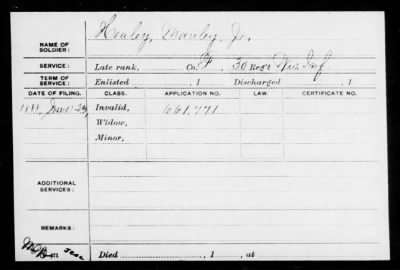 NAME OF SOLDIER: Healey, Manley, Jr.
SERVICE: Late rank, Co. F, 30 Reg't Wis. Inf
TERM OF SERVICE: Enlisted , 1 Discharged , 1
DATE OF FILING. CLASS. APPLICATION NO. LAW. CERTIFICATE NO.
1888, June 26, Invalid, 661,771
Widow,
Minor,
ADDITIONAL SERVICES:
REMARKS:
Died , 1 , at